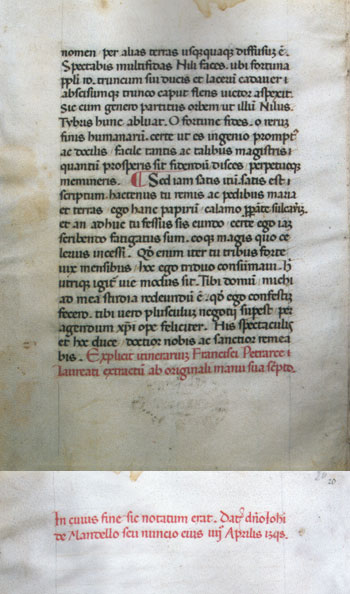 nomen per alias terras usquequaq; diffusuʒ ē.
Spectabis multifidas Nili faces. ubi fortuna
ppli ro. truncum sui ducis et laceruʒ cadauer i
abscisumque trunco caput flens uictor aspexit.
Sic cum genero partitus orbem ut illuʒ Nilus.
Tybris hunc abluat. O fortune fides. o reruʒ
finis humanaruʒ. certe ut es ingenio prompt9
ac docilis facile tantis ac talibus magistris
quantū prosperis sit fidendū disces, perpetueq;
memineris. ¶ Sed iam satis itū. satis est
scriptum. hactenus tu remis ac pedibus maria
et terras ego hanc papirū calamo sulcauim9.
et an adhuc tu fessus sis eundo certe ego iaʒ
scribendo fatigatus sum. eoq; magis quo ce
lerius incessi. Qd enim iter tu tribus forte
uix mensibus hoc ego triduo consūmaui. h
utriq; igit uie modus sit. Tibi domū michi
ad mea studia redeundū ē. qd ego confestiʒ
fecero. tibi uero plusculuʒ negotii supest per
agendum xpi ope feliciter. His spectaculis
et hoc duce doctior nobis ac sanctior remea
bis. Explicit itinerariuʒ Francisci Petrarce
laureati extractū ab originali manu sua scpto.
In cuius fine sic notatum erat. Dat dno Iohi
de Mandello seu nuncio eius iiij Aprilis